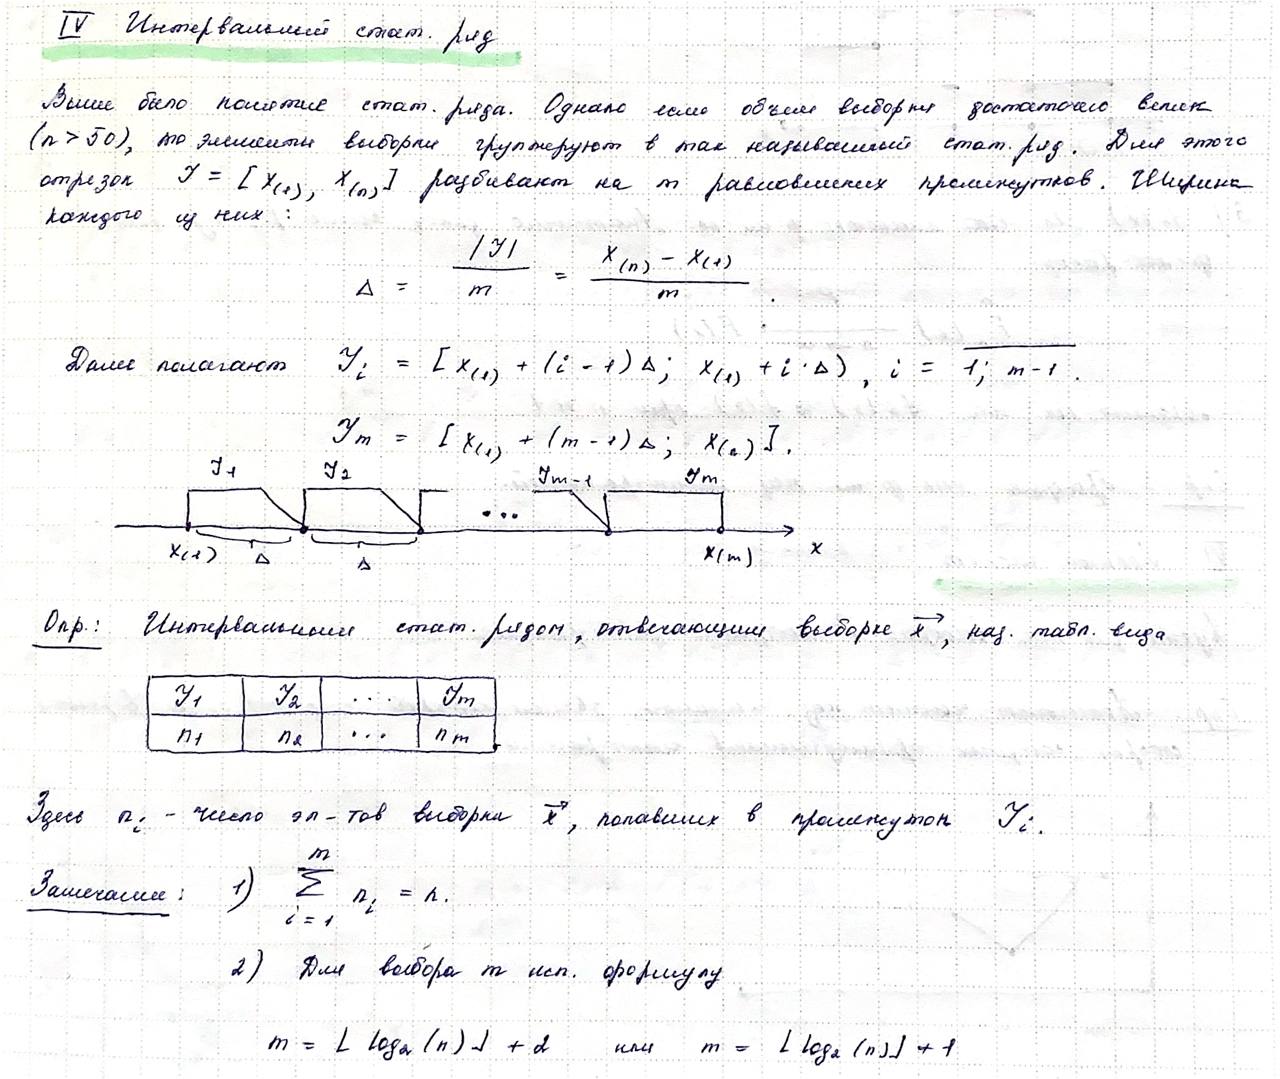 IV Интервальный стат. ряд
Выше было понятие стат. ряда. Однако если объем выборки достаточно велик
(n > 50), то элементы выборки группируют в так называемый стат. ряд. Для этого
отрезок J = [x(1), x(n)] разбивают на m равновеликих промежутков. Ширина
каждого из них:
Δ = |J| / m = (x(n) − x(1)) / m .
Далее полагают J_i = [x(1) + (i − 1)Δ; x(1) + i·Δ), i = 1; m−1.
J_m = [x(1) + (m−1)Δ; x(n)].
J1 J2 ... Jm−1 Jm
x(1) Δ Δ x(m) x
Опр.: Интервальным стат. рядом, отвечающим выборке x, наз. табл. вида
J1 J2 ... Jm
n1 n2 ... nm
Здесь n_i – число эл-тов выборки x, попавших в промежуток J_i.
Замечание: 1) ∑_{i=1}^{m} n_i = n.
2) Для выбора m исп. формулу
m = ⌊log2(n)⌋ + 2 или m = ⌊log2(n)⌋ + 1